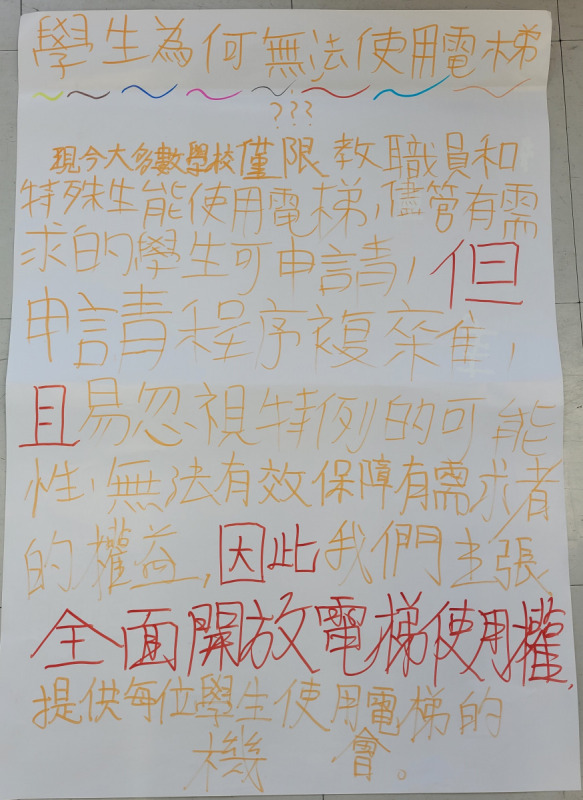 學生為何無法使用電梯
???
現今大多數學校僅限教職員和
特殊生能使用電梯,儘管有需
求的學生可申請,但
申請程序複雜,
且易忽視特例的可能
性,無法有效保障有需求者
的權益,因此我們主張
全面開放電梯使用權,
提供每位學生使用電梯的
機會。